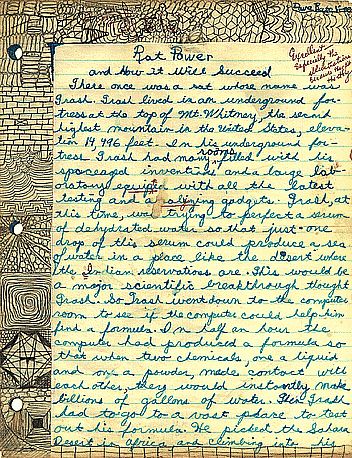 Excellent
especially the
illustrations
Rat Power
and How it Will Succeed
There once was a rat whose name was
Trash. Trash lived in an underground for-
tress at the top of Mt. Whitney, the second
highest mountain in the United States, eleva-
tion 14,496 feet. In his underground for-
tress Trash had many rooms filled with his
spaceaged inventions and a large lab-
oratory equipt with all the latest
testing and analizing gadgets. Trash, at
this time, was trying to perfect a serum
of dehydrated water so that just one
drop of this serum could produce a sea
of water in a place like the desert where
the Indian reservations are. This would be
a major scientific breakthrough thought
Trash. So Trash went down to the computer
room to see if the computer could help him
find a formula. In half an hour the
computer had produced a formula so
that when two chemicals, one a liquid
and one a powder, made contact with
each other, they would instantly make
billions of gallons of water. Then Trash
had to go to a vast place to test
out his formula. He picked the Sahara
Desert in Africa and climbing into his